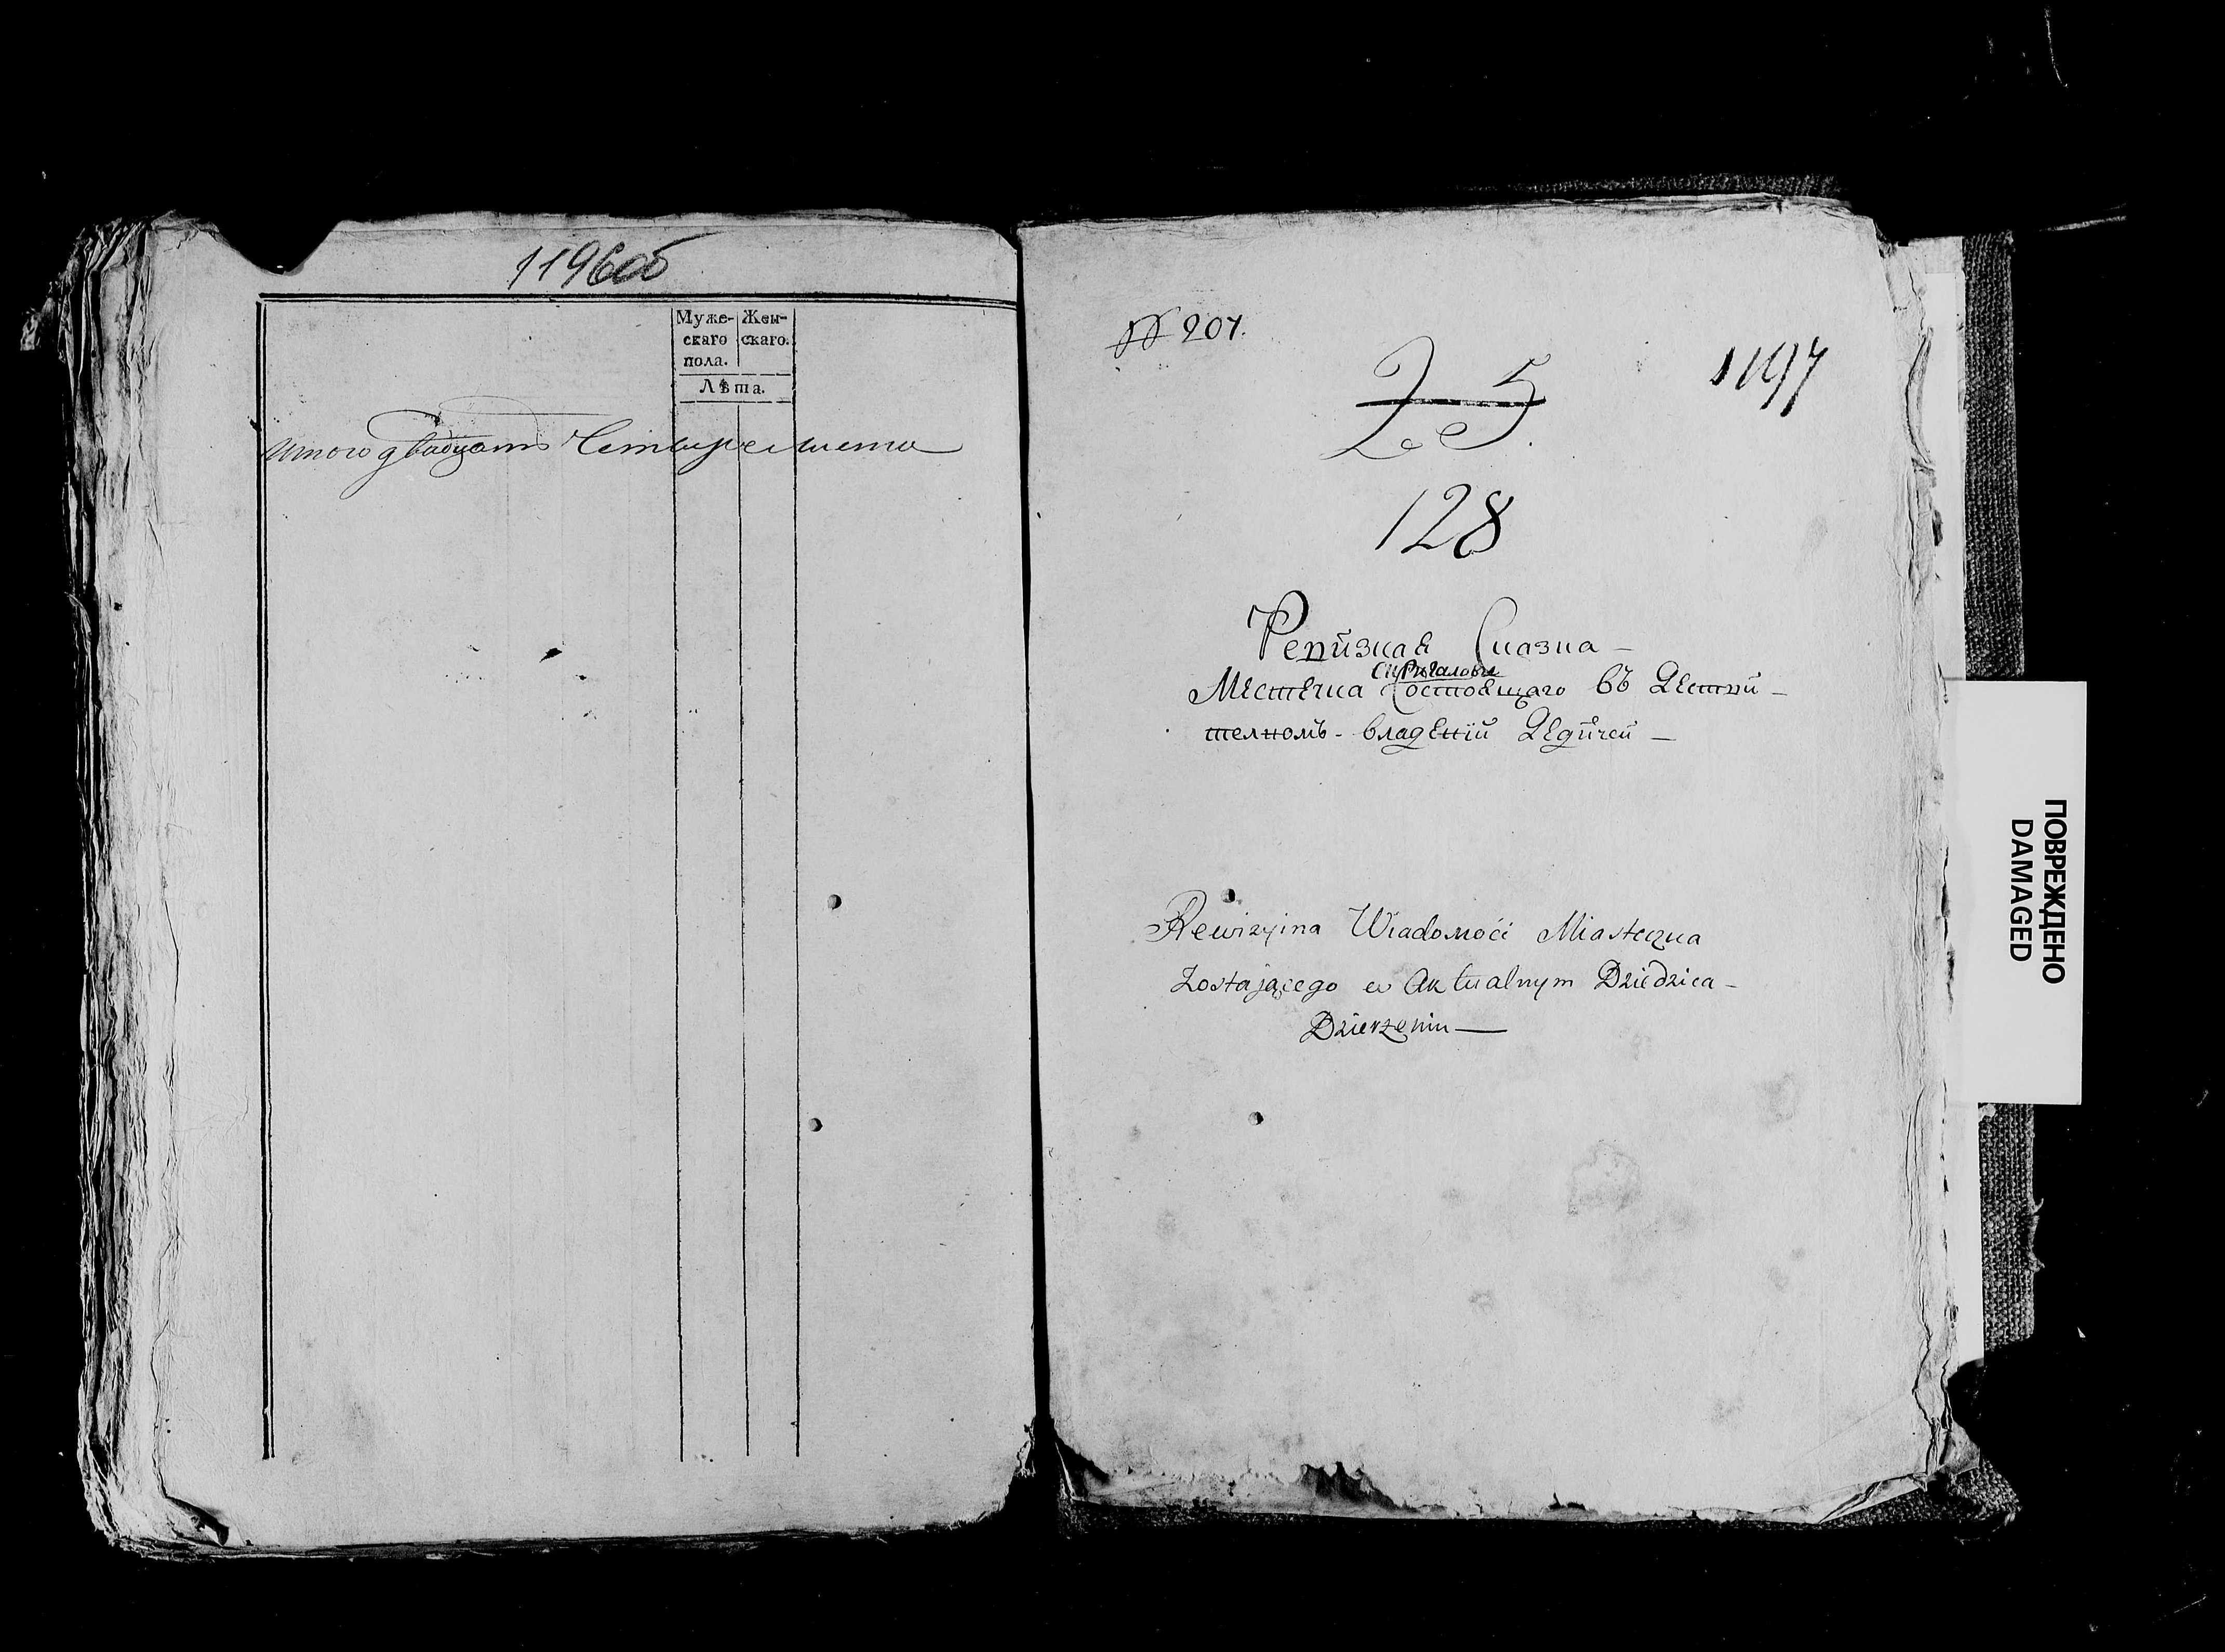 1196об
Муже- Жен-
скаго скаго.
пола.
Лѣта.
итого двадцать Четыре листа
№ 207.
1197
25
128
Ревизкая Сказка
Местечка Состоящаго въ Деství-
телномъ владении Дедичей
Rewizyina Wiadomość Miasteczka
Zostającego w Aktualnym Dziedzica
Dzierzeniu
ПОВРЕЖДЕНО
DAMAGED